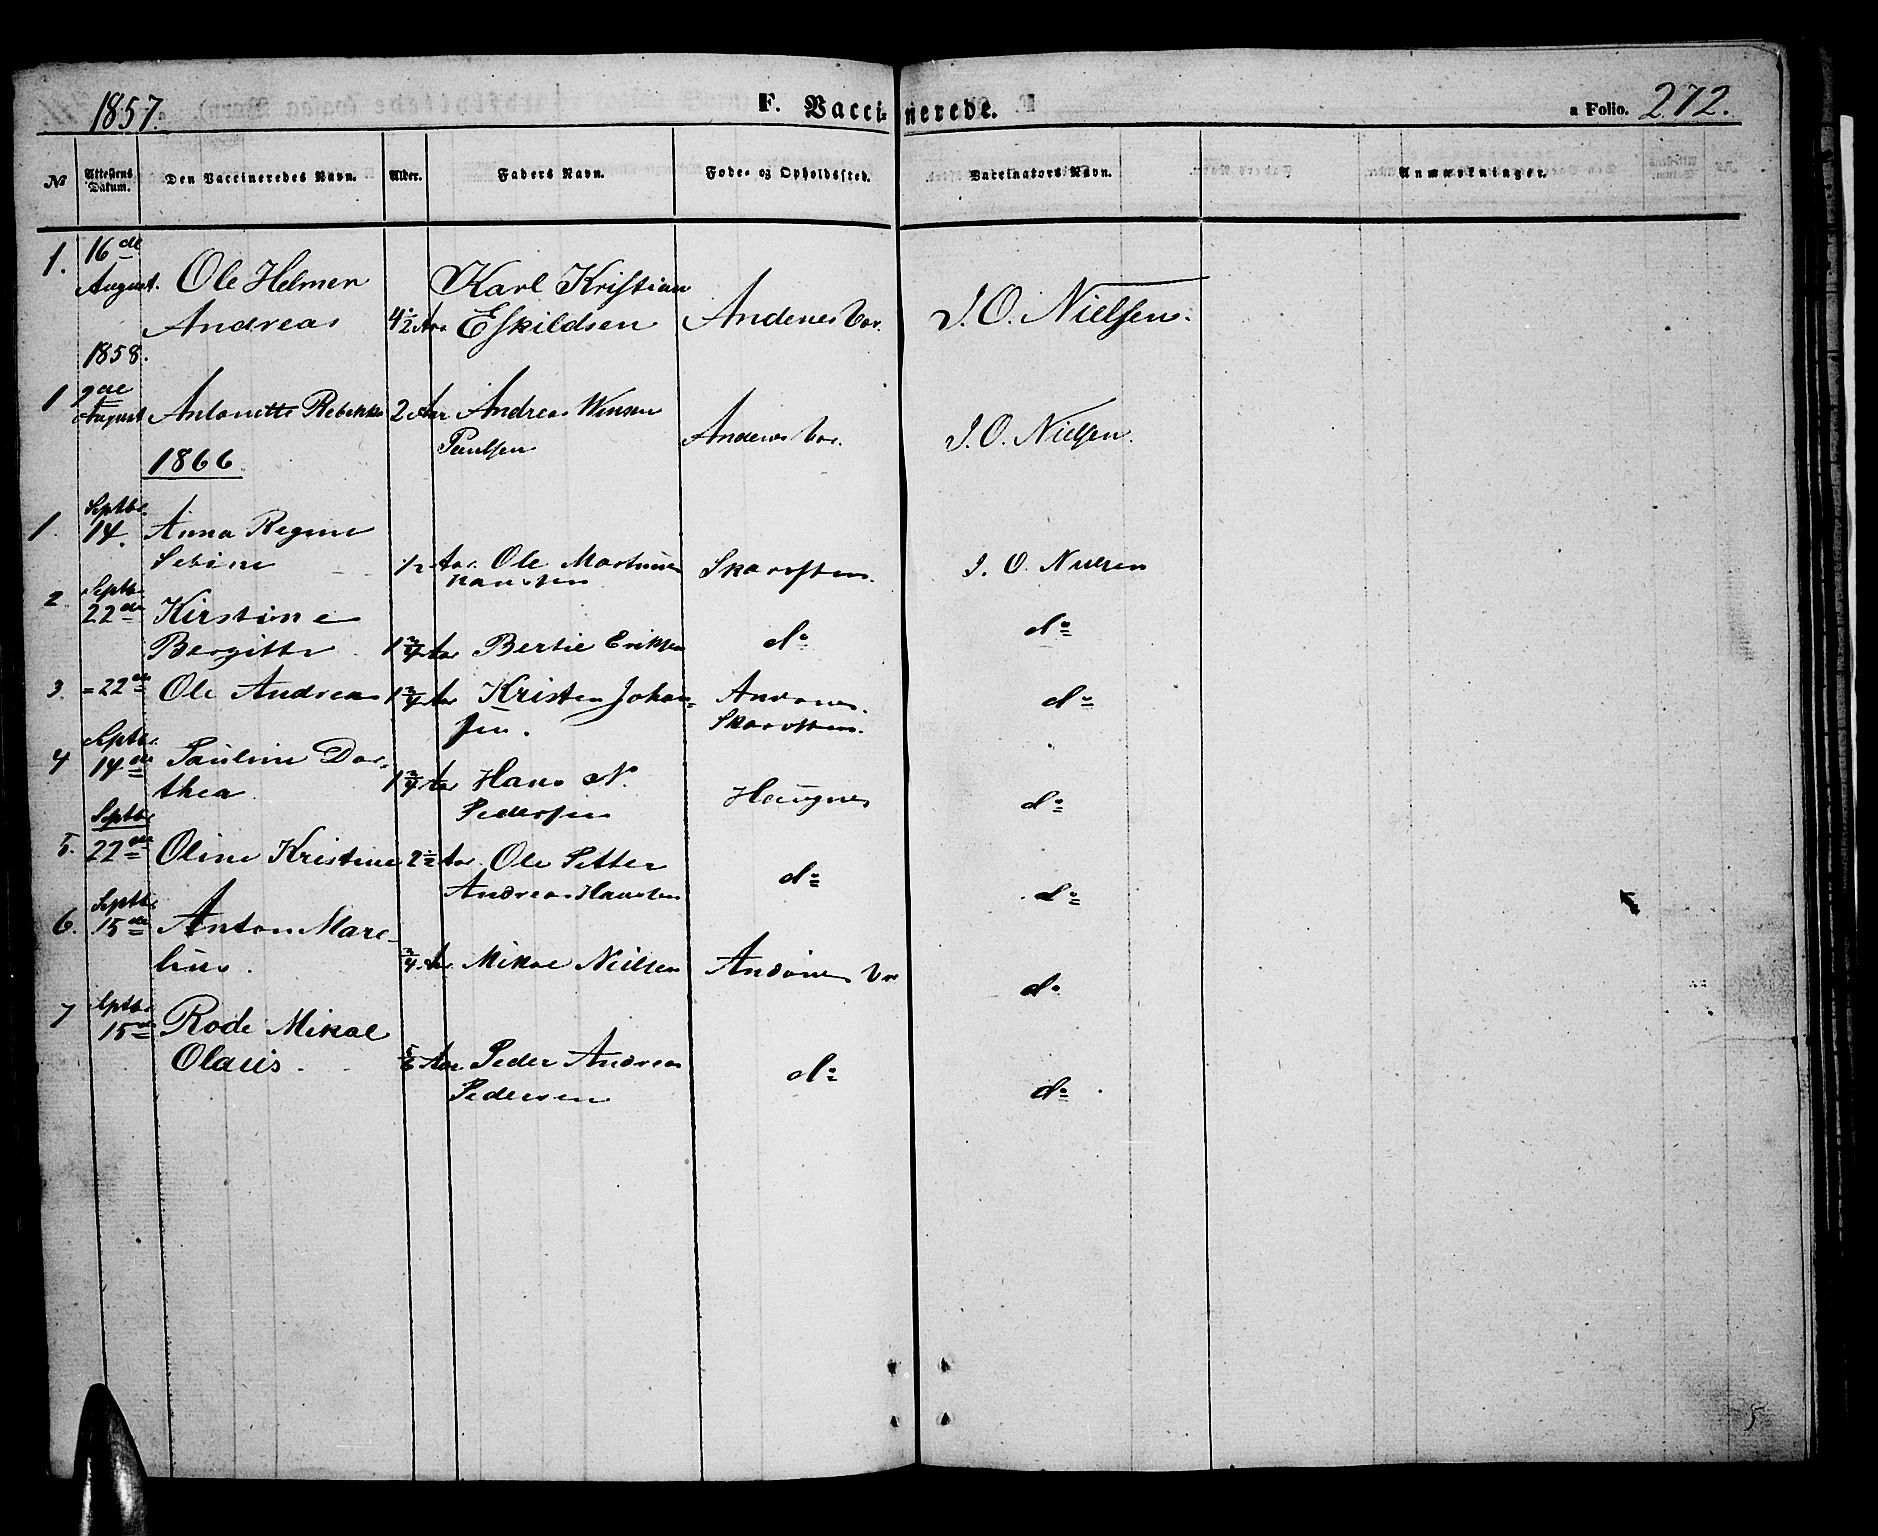 1857. F. Vaccinerede. a Folio. 272.
№ Attestens Datum. Den Vaccineredes Navn. Alder. Faders Navn. Føde- og Opholdssted. Vaccinators Navn. Anmærkninger.
1. 16de
August. Ole Helmer Karl Kristian
Andreas 4½ Aar Eskildsen Andenes Vær. J. O. Nielsen.
1858.
1 2de
August Antonette Rebekka 2 Aar Andreas
Paulsen Andenes Vær. J. O. Nielsen.
1866.
1. Septbr. 14. Anna Regine
Sebine ½ Aar. Ole Martinus Skarsten. J. O. Nielsen
Hansen
2 Septbr. 22de Kirstine
Bergitte 1¾ Aar Bertie Eriksen do do
3. = 22de Ole Andreas 1¾ Aar Kristen Johan- Andenes. do
sen. Skarsten.
4 Septbr. 14de Pauline Dor-
thea. 1¾ Aar Hans N. Haugnes do
Pedersen
5. Septbr. 22de Oline Kristine 2½ Aar. Ole Petter do do
Andreas Hansen
6. Septbr. 15de Anton Mare-
lius. ¾ Aar. Mikal Nielsen Andenes Vær do
7 Septbr. 15de Rode Mikal
Olaus. Aar Peder Andreas do do
Pedersen